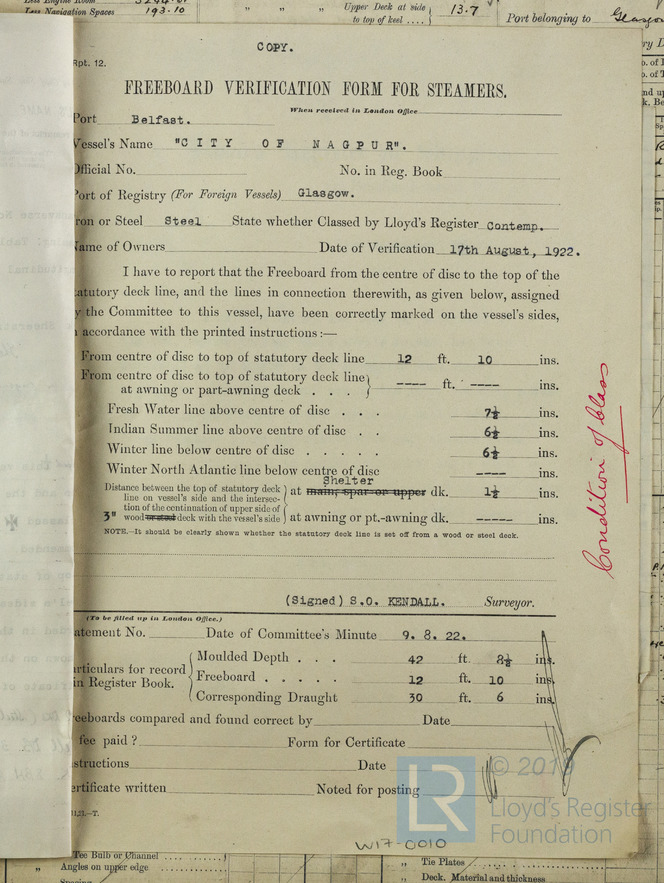 Less Navigation Spaces 193.10 " " " Upper Deck at side to top of keel .... 13.7 Port belonging to
COPY.
Rpt. 12.
FREEBOARD VERIFICATION FORM FOR STEAMERS.
When received in London Office
Port Belfast.
Vessel's Name "CITY OF NAGPUR".
Official No. No. in Reg. Book
Port of Registry (For Foreign Vessels) Glasgow.
ron or Steel Steel State whether Classed by Lloyd's Register Contemp.
Name of Owners Date of Verification 17th August, 1922.
I have to report that the Freeboard from the centre of disc to the top of the
tatutory deck line, and the lines in connection therewith, as given below, assigned
y the Committee to this vessel, have been correctly marked on the vessel's sides,
accordance with the printed instructions :—
From centre of disc to top of statutory deck line 12 ft. 10 ins.
From centre of disc to top of statutory deck line
at awning or part-awning deck . . . ---- ft. ---- ins.
Fresh Water line above centre of disc . . . 7½ ins.
Indian Summer line above centre of disc . . 6½ ins.
Winter line below centre of disc . . . . . 6½ ins.
Winter North Atlantic line below centre of disc ---- ins.
Shelter
Distance between the top of statutory deck
line on vessel's side and the intersec- at main, spar or upper dk. 1½ ins.
tion of the continuation of upper side of
3" wood deck with the vessel's side at awning or pt.-awning dk. ----- ins.
NOTE.—It should be clearly shown whether the statutory deck line is set off from a wood or steel deck.
Condition of Class
(Signed) S.O. KENDALL. Surveyor.
(To be filled up in London Office.)
atement No. Date of Committee's Minute 9. 8. 22.
Moulded Depth . . . 42 ft. 8½ ins.
articulars for record
in Register Book.
Freeboard . . . . . 12 ft. 10 ins.
Corresponding Draught 30 ft. 6 ins.
eeboards compared and found correct by Date
fee paid ? Form for Certificate
structions Date
ertificate written Noted for posting
© 2019
LR
Lloyd's Register
Foundation
11,21.—T.
W17-0010
Tee Bulb or Channel
" Angles on upper edge
" Tie Plates
" Deck. Material and thickness